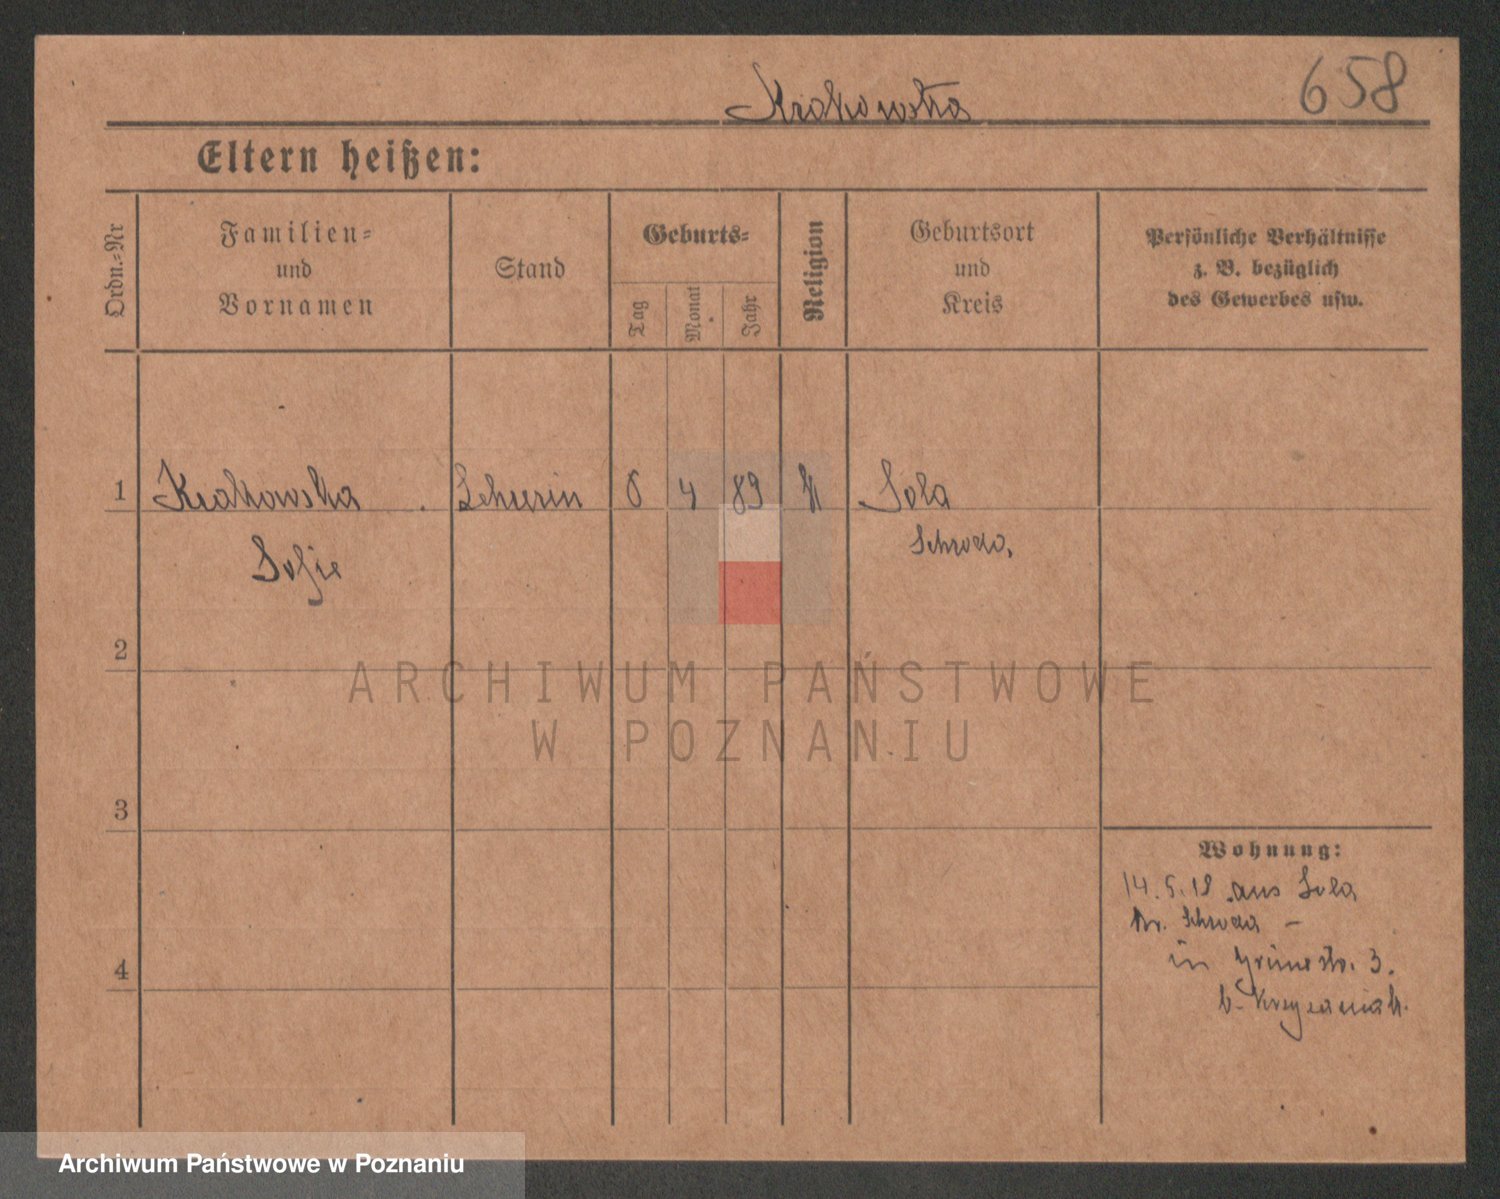 Krakowska
658
Eltern heißen:
Ordn.-Nr
Familien-
und
Vornamen
Stand
Geburts-
Tag
Monat
Jahr
Religion
Geburtsort
und
Kreis
Persönliche Verhältnisse
z. B. bezüglich
des Gewerbes usw.
1 Krakowska . 6 4 89 K Sola
Sofie Schroda.
2
ARCHIWUM PAŃSTWOWE
W POZNANIU
3
Wohnung:
14.5.18 aus Sola
Kr. Schroda –
in Grünestr. 3.
4
b. Krzyzaniak.
Archiwum Państwowe w Poznaniu